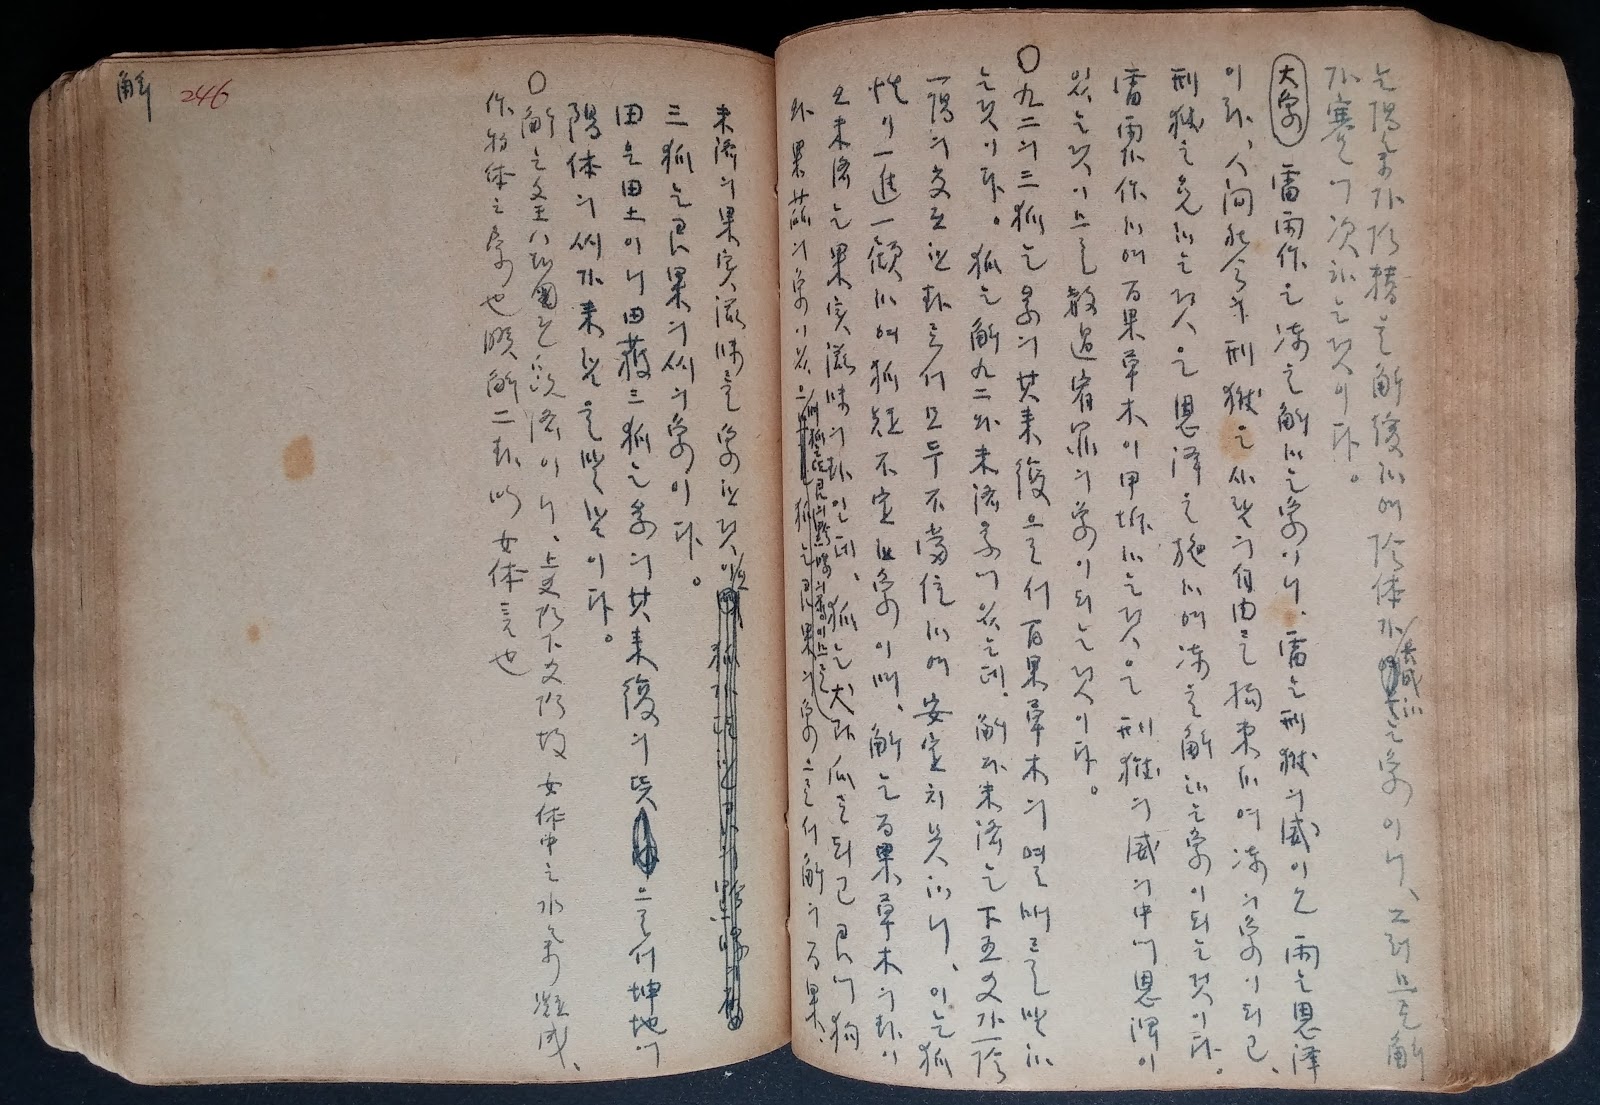 는 陽氣가 陰精을 解後하여 陰体가 盛하는 象이니, 그러므로 解
가 蹇에 次하는 것이다.
大象 雷雨作은 凍을 解하는 象이니, 雷는 刑獄의 威이오 雨는 恩澤
이라, 人間社會에 刑獄은 사람의 自由를 拘束하여 凍의 象이 되고,
刑獄을 免하는 것은 恩澤을 施하여 凍을 解하는 象이 되는 것이다.
雷雨가 作하여 百果草木이 甲坼하는 것은 刑獄의 威의 中에 恩澤이
있는 것이므로 赦過宥罪의 象이 되는 것이다.
○九二의 三狐는 彖의 其來復으로서 百果草木의 열매를 맺히
는 것이다. 狐는 解九二와 未濟彖에 있는데, 解와 未濟는 下五爻가 一陰
一陽의 交互한 卦로서 모두 不當位하여 安定치 못하니, 이는 狐
性이 一進一顧하여 狐疑不定한 象이며, 解는 百果草木의 卦이
오 未濟는 果實滋味의 卦인데, 狐는 犬과 瓜로 되고 艮에 狗
와 果蓏의 象이 있으며 狐는 艮의 黔喙의 象이므로 解의 百果,
未濟의 果實滋味로 象한 것이며
三狐는 艮果의 씨의 象이다.
田은 田土이니 田獲三狐는 彖의 其來復의 뜻으로서 坤地에
陽体의 씨가 來함을 말함이다.
○解之文王八卦圖 濟이니, 上爻陰下爻陰故 女体中之水氣凝成,
作物体之象也 睽解二卦 以女体言也
解 246